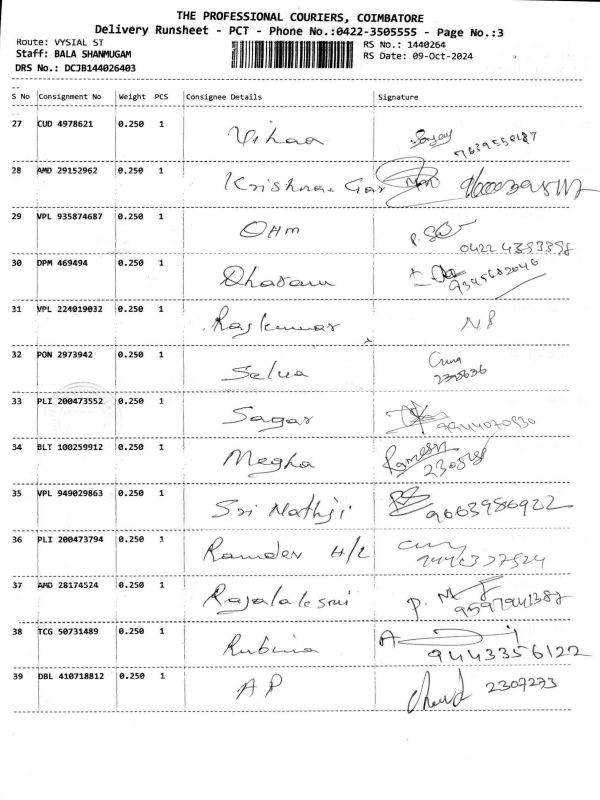 THE PROFESSIONAL COURIERS, COIMBATORE
Delivery Runsheet - PCT - Phone No.:0422-3505555 - Page No.:3
Route: VYSIAL ST
RS No.: 1440264
Staff: BALA SHANMUGAM
RS Date: 09-Oct-2024
DRS No.: DCJB144026403
S No Consignment No Weight PCS Consignee Details Signature
27 CUD 4978621 0.250 1 Vihaa
28 AMD 29152962 0.250 1 Krishna
29 VPL 935874687 0.250 1 OHM
30 DPM 469494 0.250 1 Dharani 9345682046
31 VPL 224019032 0.250 1 Rajkumar NP
32 PON 2973942 0.250 1 Selva
33 PLI 200473552 0.250 1 Sagar
34 BLT 100259912 0.250 1 Megha Ramesh
35 VPL 949029863 0.250 1 Sri Nathji 9663986922
36 PLI 200473794 0.250 1 Ramdev H/L
37 AMD 28174524 0.250 1 Rajalakshmi
38 TCG 50731489 0.250 1 Rubina 9443356122
39 DBL 410718812 0.250 1 AP 2307273